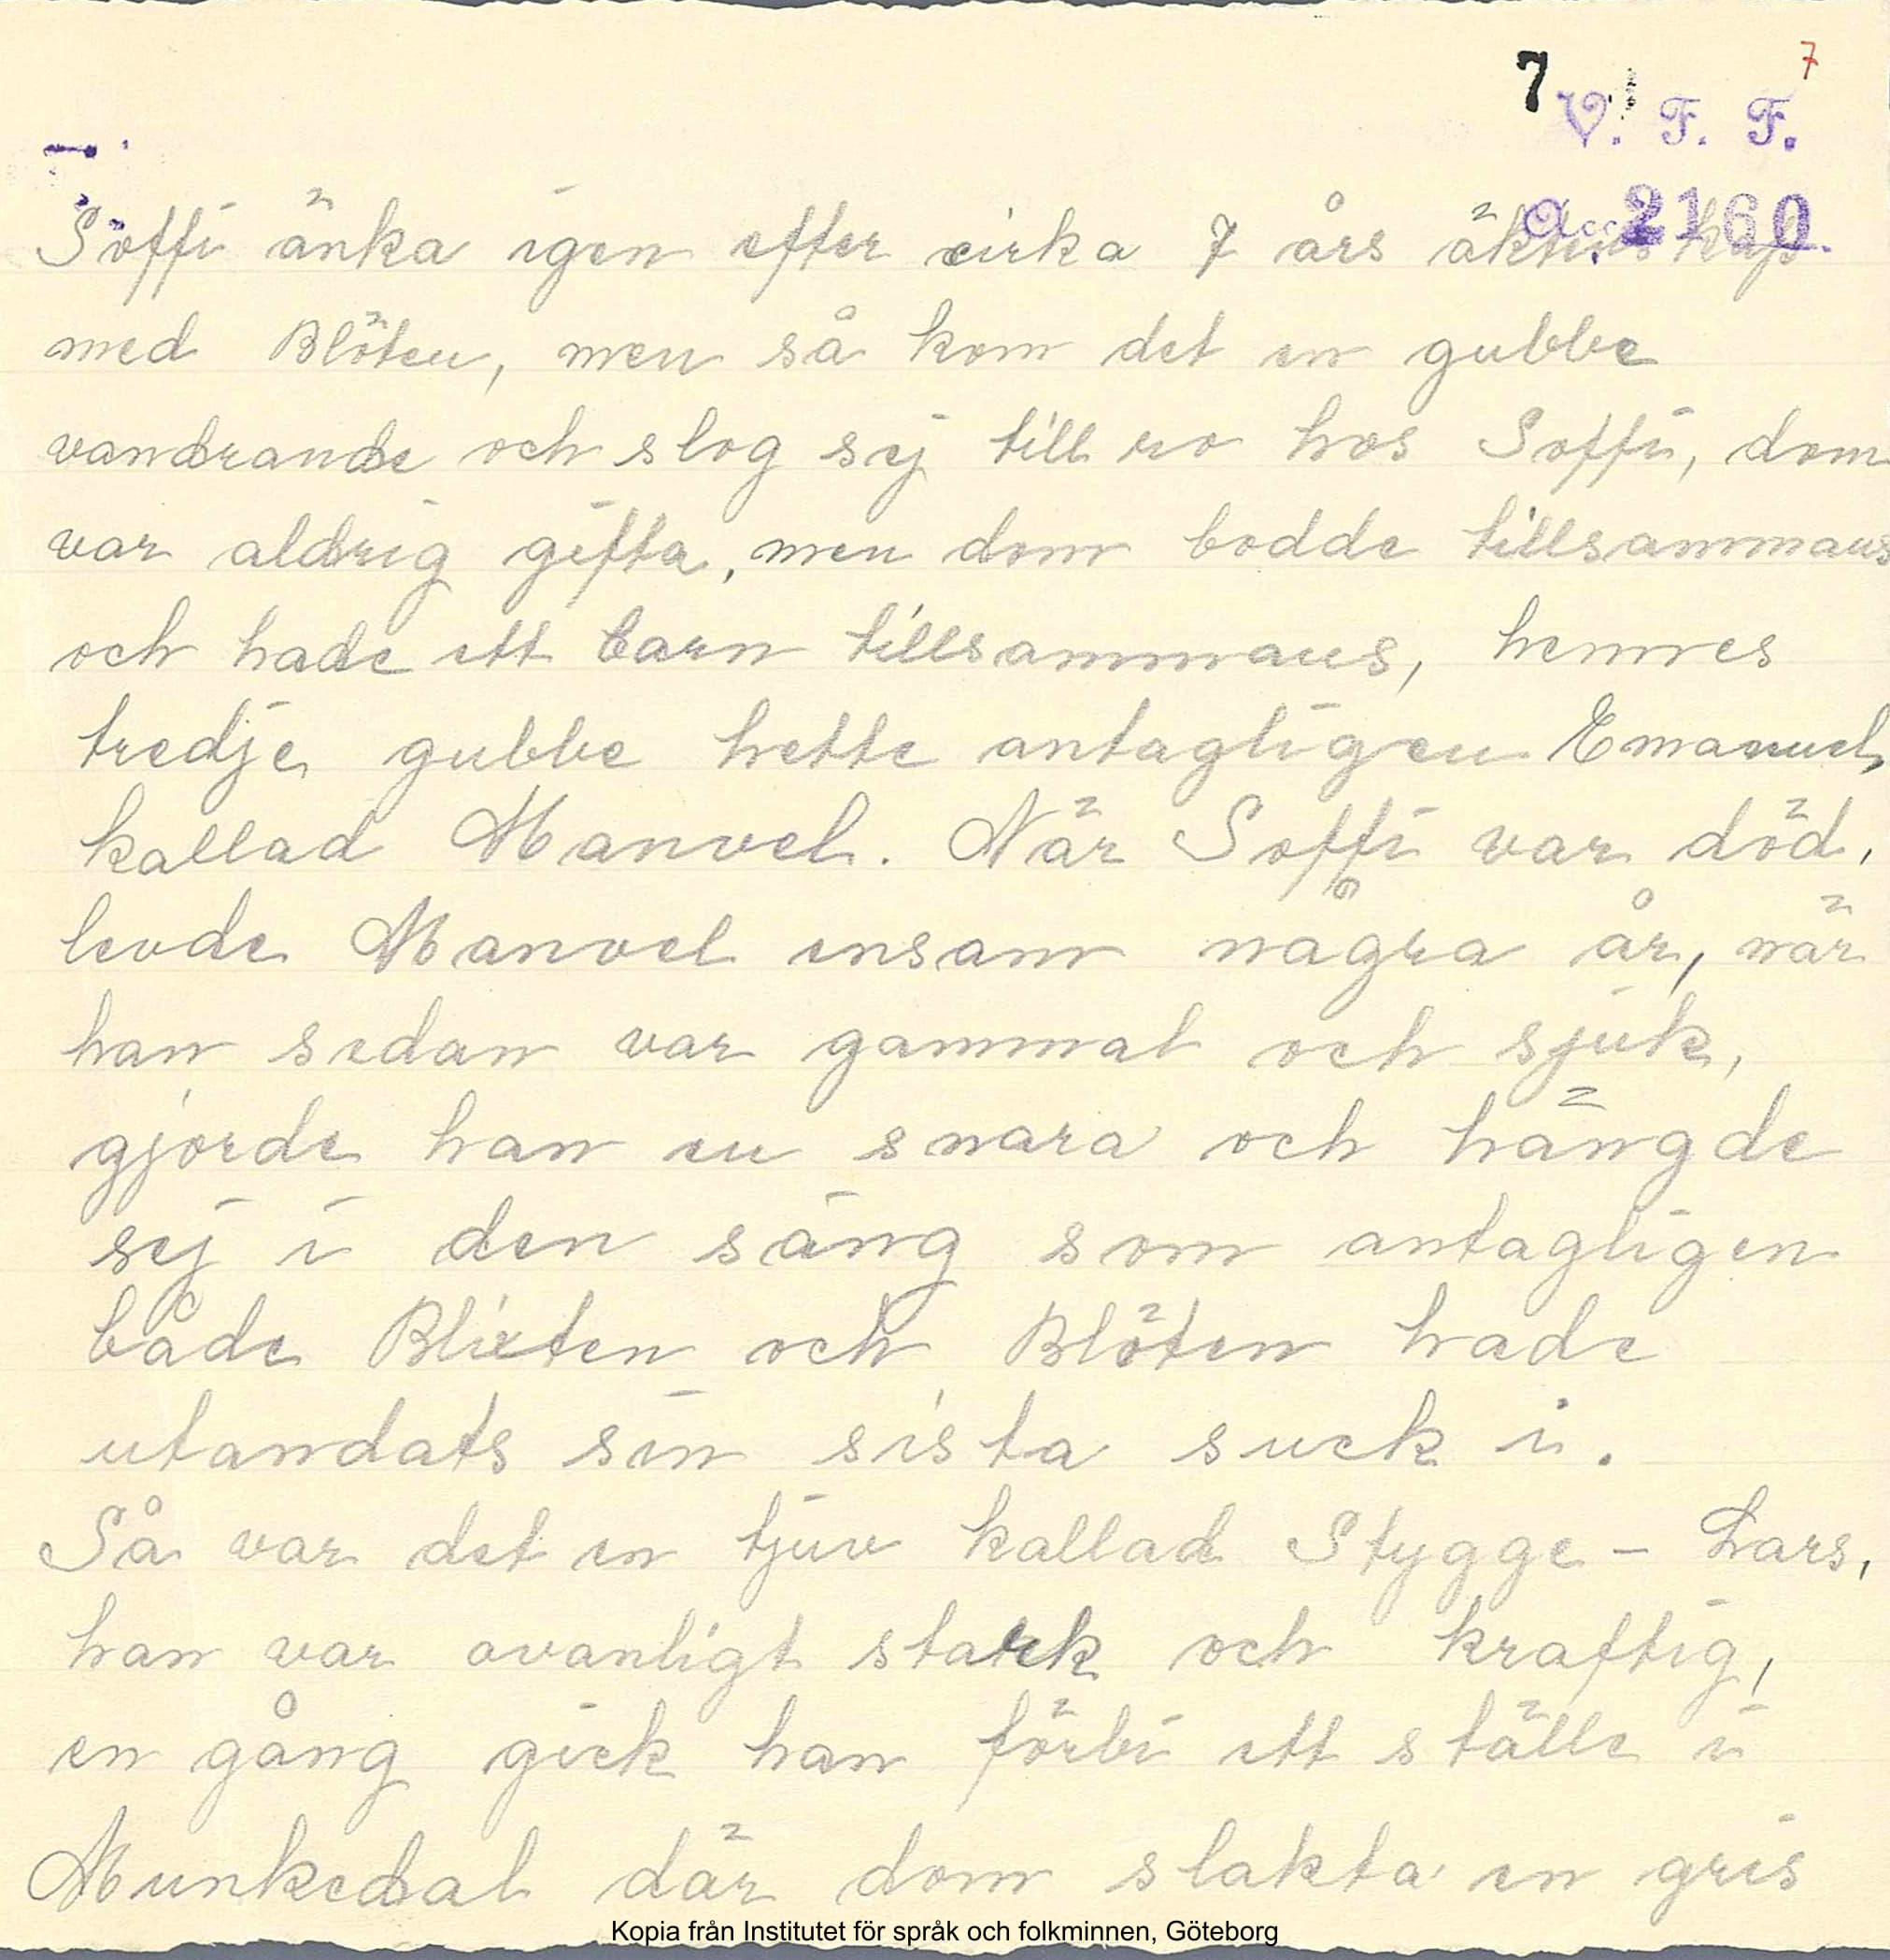 7 7
V. F. F.
Acc. 2160.
Soffi änka igen efter cirka 7 års äktenskap
med Blöten, men så kom det en gubbe
vandrande och slog sej till ro hos Soffi, dom
var aldrig gifta, men dom bodde tillsammans
och hade ett barn tillsammans, hennes
tredje gubbe hette antagligen Emanuel,
kallad Manvel. När Soffi var död,
levde Manvel ensam några år, när
han sedan var gammal och sjuk,
gjorde han en snara och hängde
sej i den säng som antagligen
både Blixten och Blöten hade
utandats sin sista suck i.
Så var det en tjuv kallad Stygge - Lars,
han var ovanligt stark och kraftig,
en gång gick han förbi ett ställe i
Munkedal där dom slakta en gris
Kopia från Institutet för språk och folkminnen, Göteborg